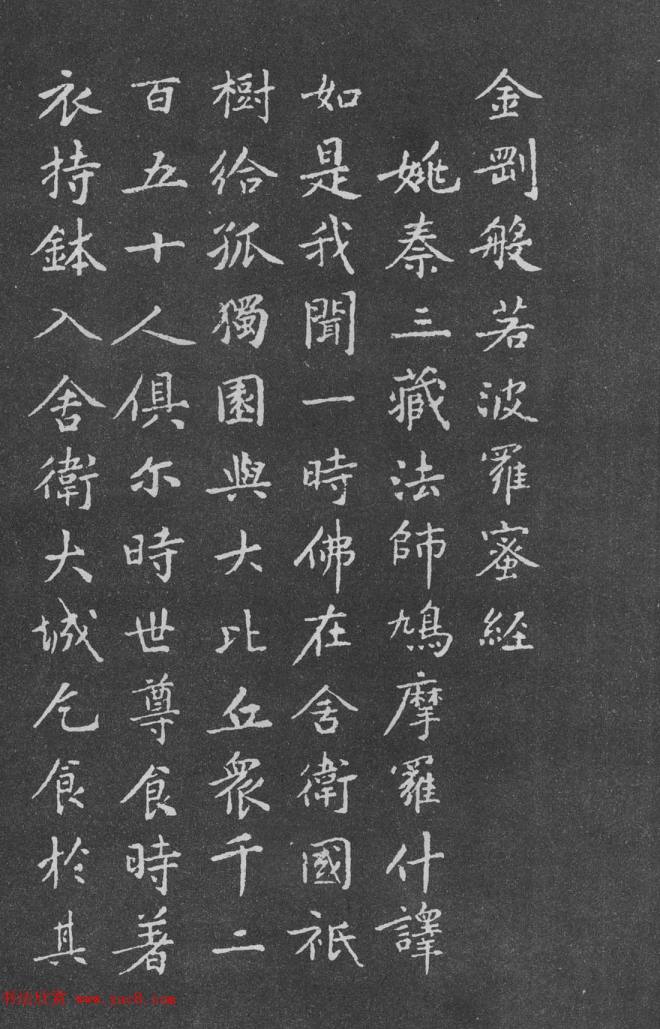 金剛般若波羅蜜經
姚秦三藏法師鳩摩羅什譯
如是我聞一時佛在舍衛國祇
樹給孤獨園與大比丘衆千二
百五十人俱尒時世尊食時著
衣持鉢入舍衛大城乞食於其
书法欣赏 www.yac8.com